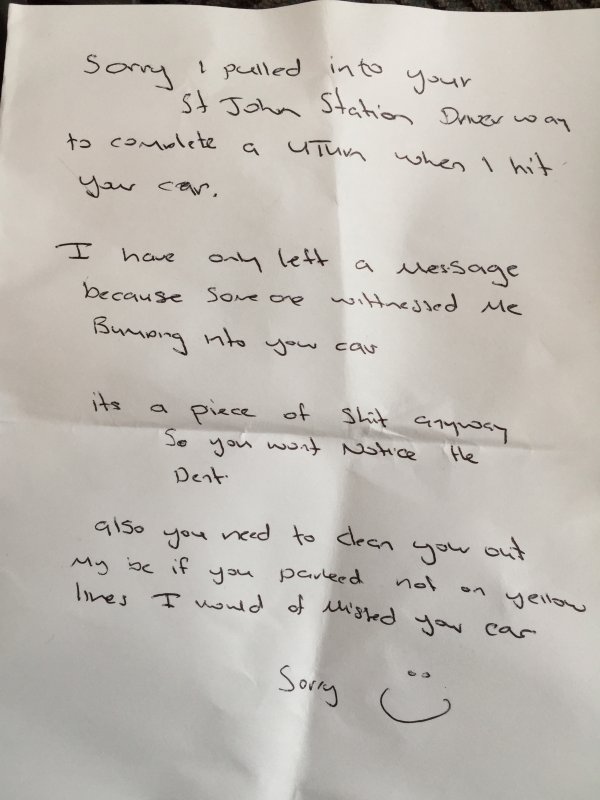 Sorry I pulled into your
St John Station Driver way
to complete a UTurn when I hit
your car.
I have only left a Message
because Some one wittnessed Me
Bumping into your car
its a piece of shit anyway
So you wont Notice the
Dent.
also you need to clean your out
My be if you parked not on yellow
lines I would of Missed your car
Sorry